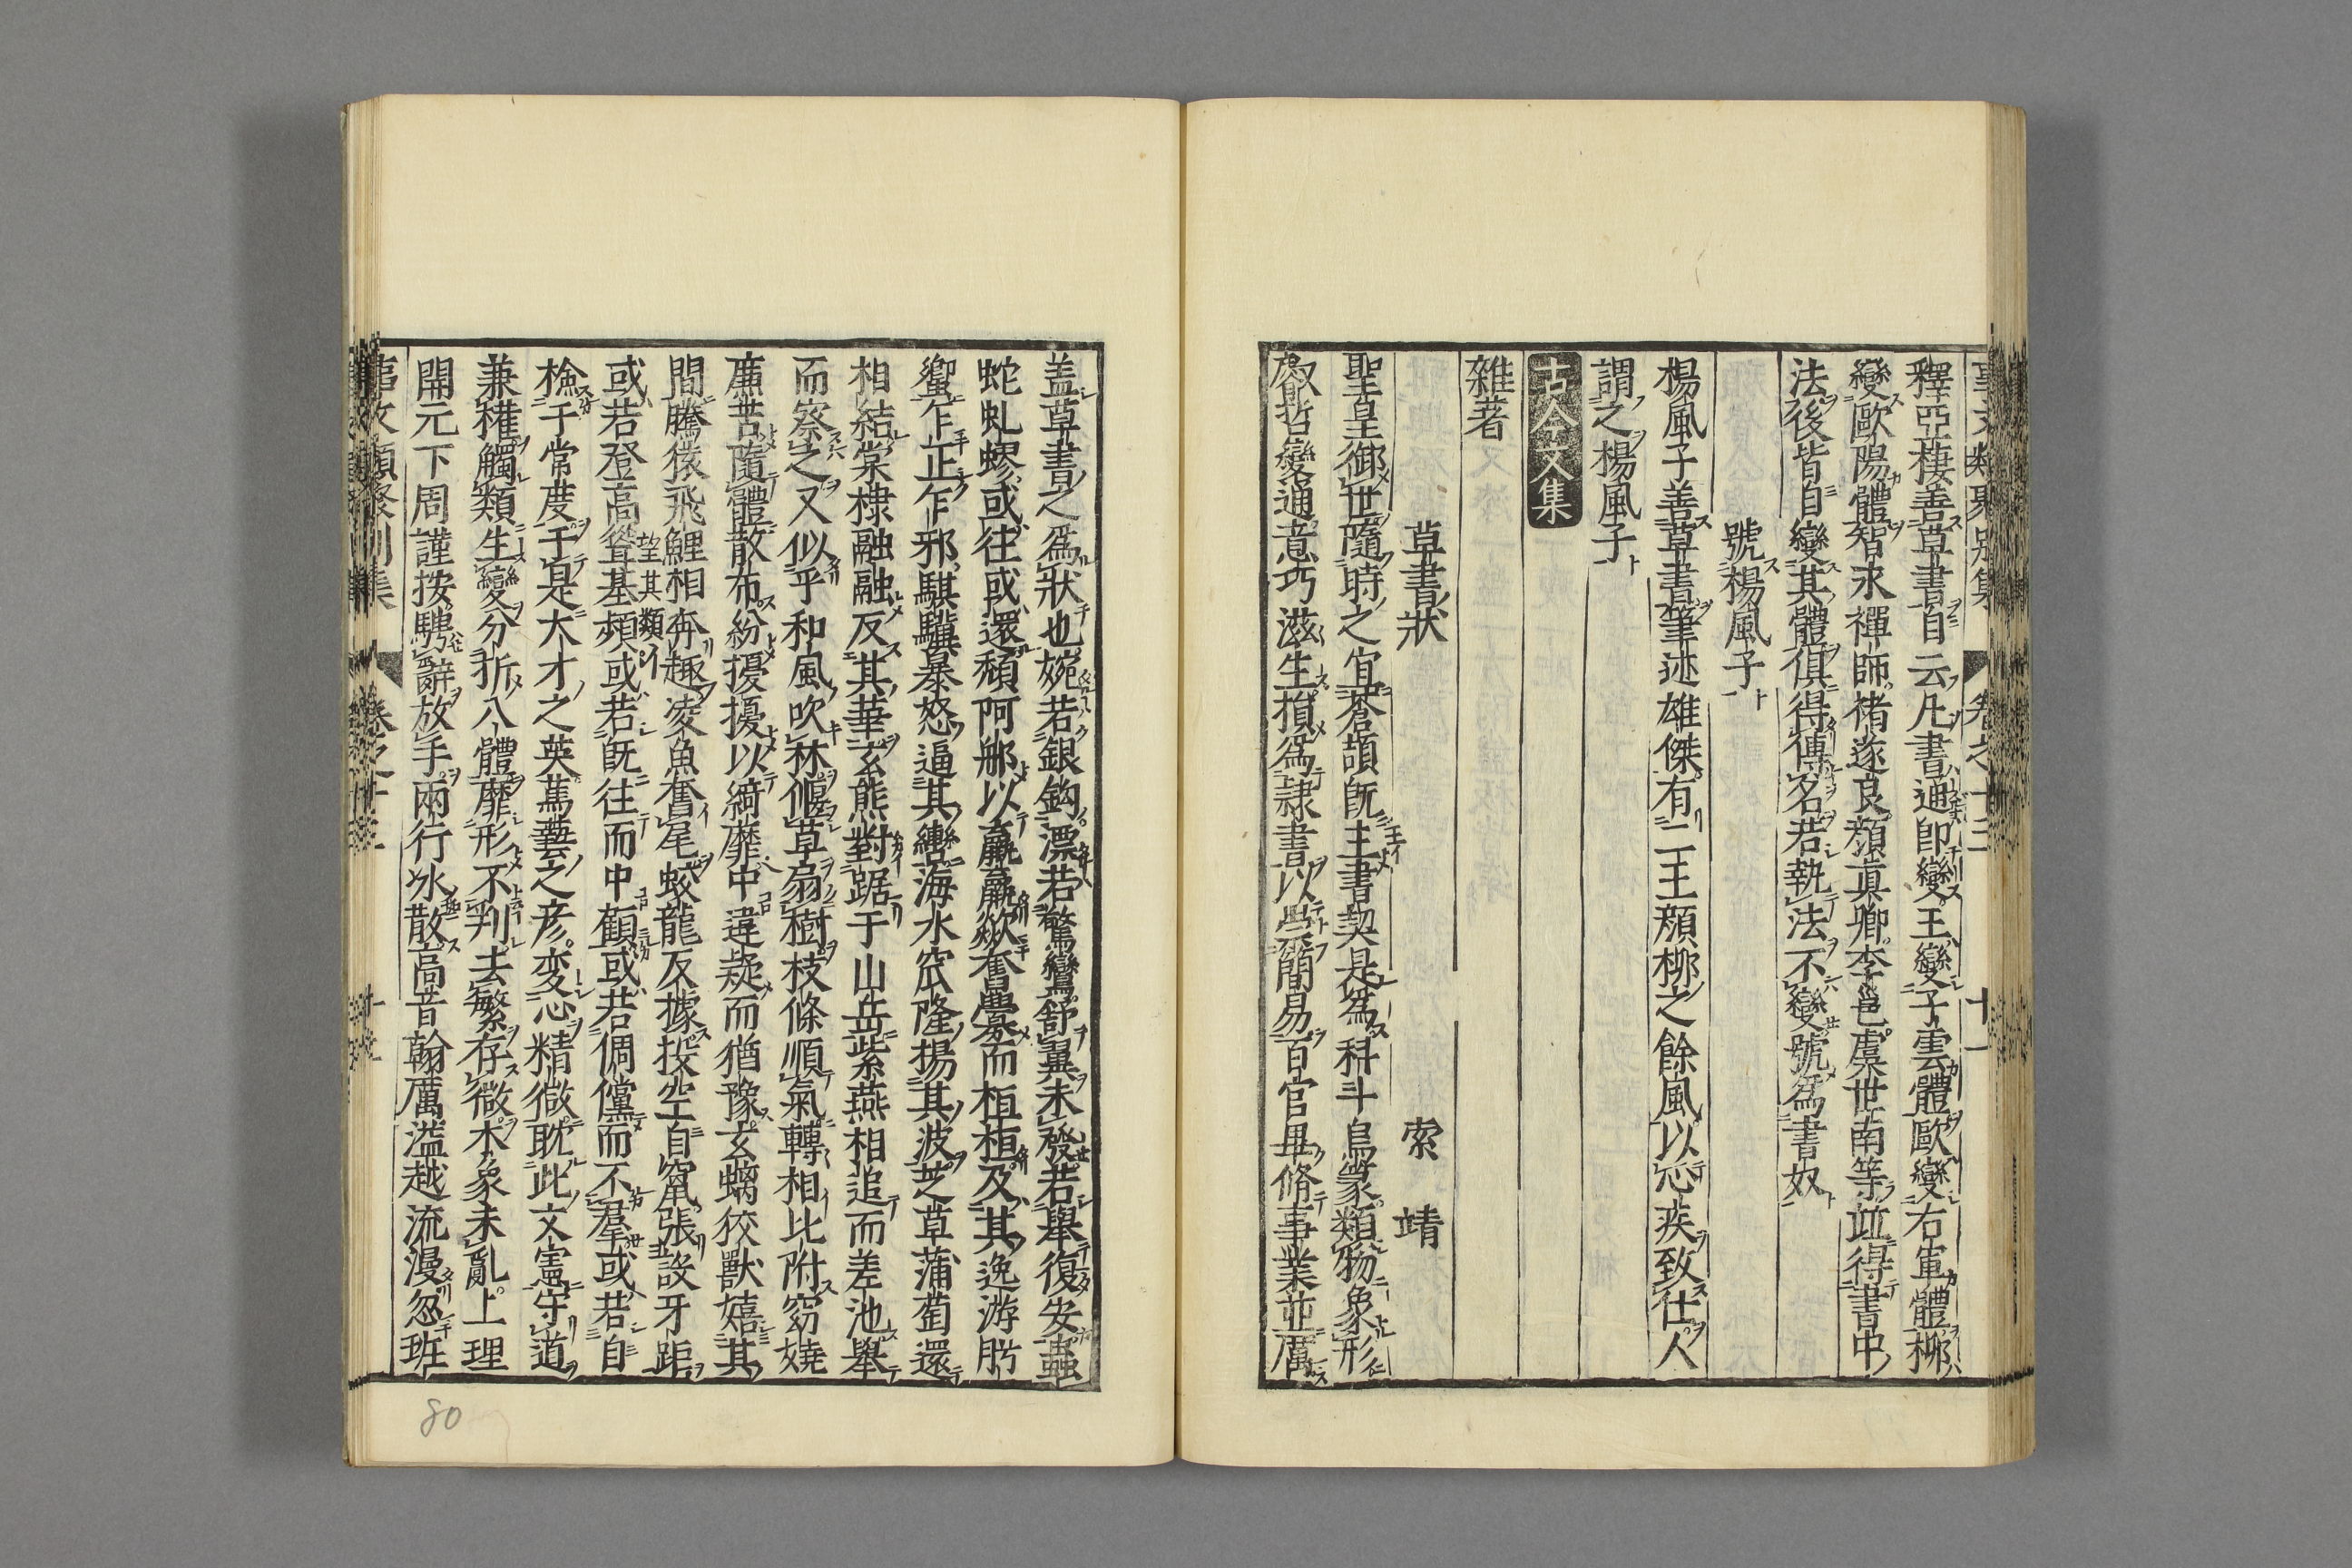 釋亞棲善草書自云凡書通即變王變子雲體歐變右軍體柳
變歐陽體智永禪師褚遂良顏眞卿李邕虞世南等並得書中
法後皆自變其體俱得傳名若執法不變號爲書奴
號楊風子
楊風子善草書筆迹雄傑有二王顏柳之餘風以心疾致仕人
謂之楊風子
古今文集
雜著
草書狀 索靖
聖皇御世隨時之宜蒼頡既主書契是爲科斗鳥篆類物象形
叡哲變通意巧滋生損爲隷書以崇簡易百官畢脩事業並厲
盖草書之爲狀也婉若銀鈎漂若驚鸞舒翼未發若舉復安蟲
蛇虬蟉或往或還頹阿那以羸羸欻奮亹而桓桓及其逸游盻
嚮乍正乍邪騏驥暴怒逼其轡海水窊隆揚其波芝草蒲萄還
相結棠棣融融反其華玄熊對踞于山岳紫燕相追而差池舉
而察之又似乎和風吹林偃草扇樹枝條順氣轉相比附窈嬈
廉苫隨體散布紛擾擾以綺靡中違疑而猶豫玄螭狡獸嬉其
間騰猿飛鯉相奔趣凌魚奮尾蛟龍反據投空自竄張設牙距
或若登高望其類或若既往而中顧或若倜儻而不羣或若自
檢于常度于是大才之英萬藝之彦変心精微耽此文憲守道
兼權觸類生變分折八體靡形不判去繁存微大象未亂上理
開元下周謹按騁辭放手兩行氷散高昔翰厲溢越流漫忽班
80